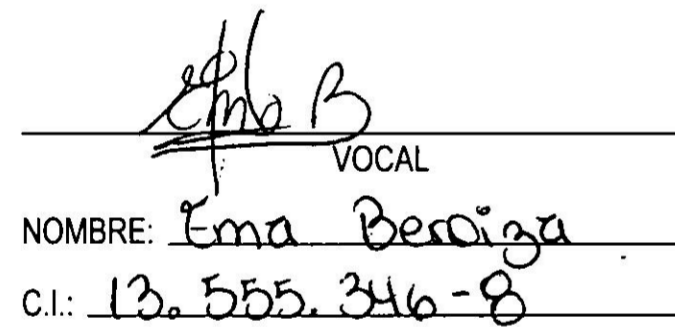 Ema B
VOCAL
NOMBRE: Ema Beroiza
C.I.: 13.555.346-8